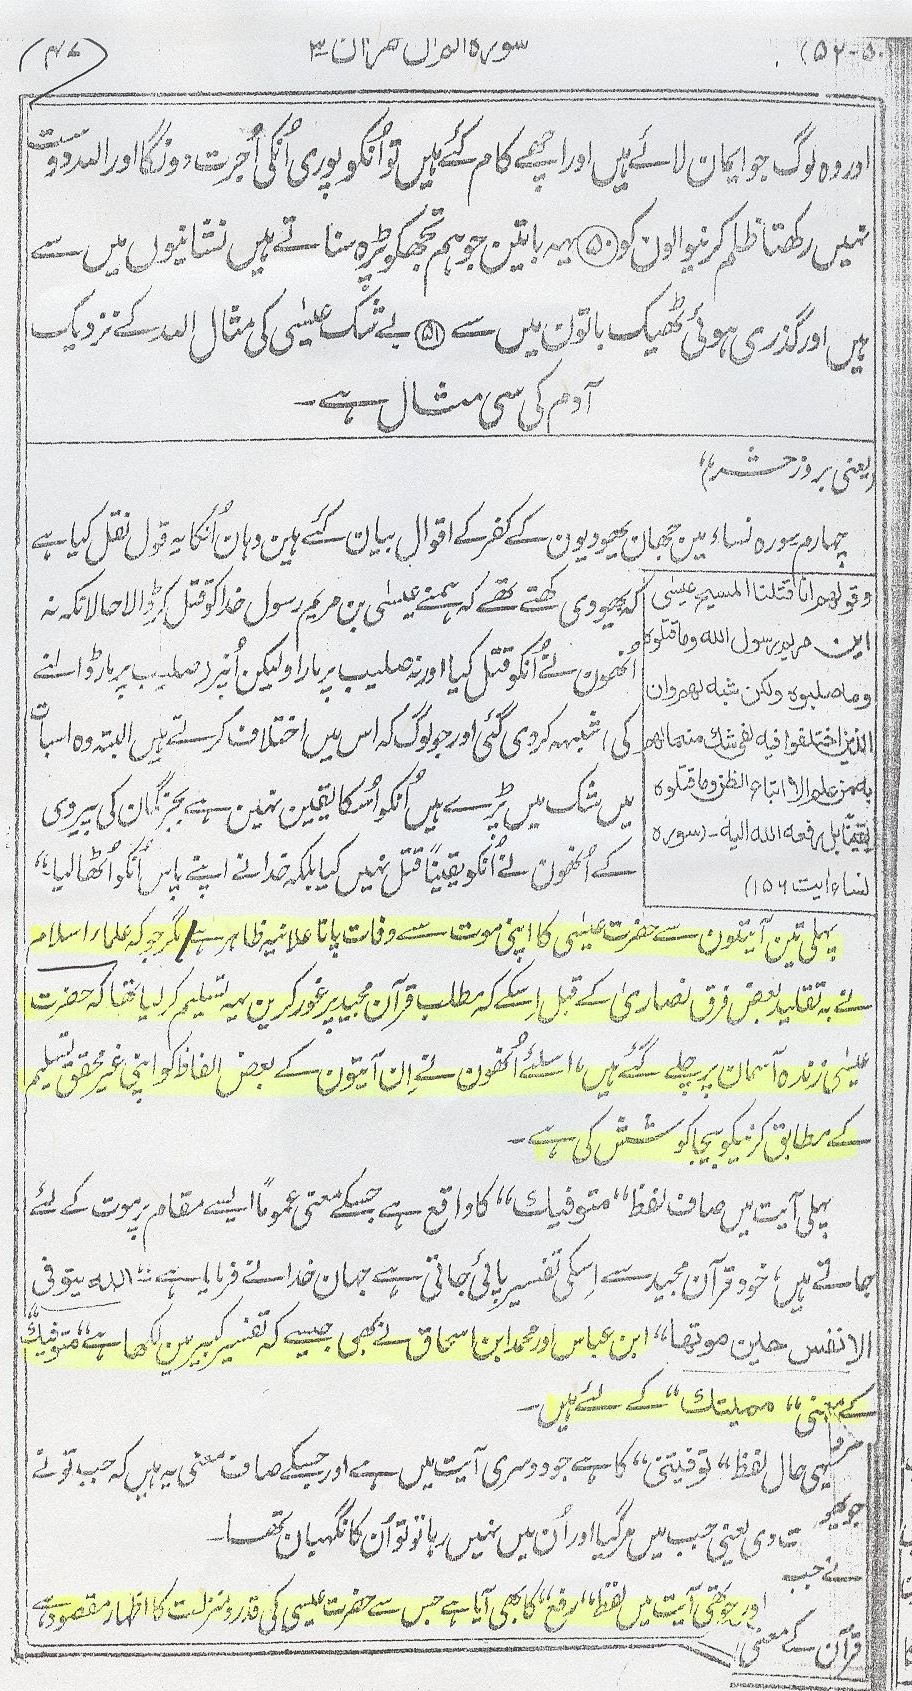 (۵۲-۵۰) سورہ اٰل عمران ۳ (۴۷)
اور وہ لوگ جو ایمان لائے ہیں اور اچھے کام کئے ہیں تو اُنکو پوری اُنکی اُجرت دونگا اور اللہ دوست
نہیں رکھتا ظلم کرنیوالون کو ۵۰ یہہ باتین جو ہم تجھکو پڑہ سناتے ہیں نشانیوں میں سے
ہیں اور گذری ہوئی ٹھیک باتون میں سے ۵۱ بے شک عیسٰی کی مثال اللہ کے نزدیک
آدم کی سی مثال ہے۔
(یعنی بروز حشر)“
چہارم سورہ نساء مین جہان یہودیون کے کفر کے اقوال بیان کئے ہین وہان اُنکا یہ قول نقل کیا ہے
وقولہم انا قتلنا المسیح عیسی
ابن مریم رسول اللہ وما قتلوہ
وما صلبوہ ولکن شبہ لہم وان
الذین اختلفوا فیہ لفی شک منہ مالہم
بہ من علم الا اتباع الظن وما قتلوہ
یقینًا بل رفعہ اللہ الیہ۔ (سورہ
نساء ایت ۱۵۶)
کہ یہودی کہتے تھے کہ ہمنے عیسٰی بن مریم رسول خدا کو قتل کر ڈالا حالانکہ نہ
اُنھون نے اُنکو قتل کیا اور نہ صلیب پر مارا ولیکن اُنپر (صلیب پر مار ڈالنے
کی) شبہہ کر دی گئی اور جو لوگ کہ اس میں اختلاف کرتے ہیں البتہ وہ اسبات
میں شک میں پڑے ہیں اُنکو اُسکا یقین نہین ہے بجز گمان کی پیروی
کے اُنھون نے اُنکو یقینًا قتل نہیں کیا بلکہ خدا نے اپنے پاس اُنکو اُٹھا لیا“
پہلی تین آیتون سے حضرت عیسٰی کا اپنی موت سے وفات پانا علانیہ ظاہر ہے / مگر جو کہ علماء اسلام
نے بہ تقلید بعض فرق نصاریٰ کے قبل اِسکے کہ مطلب قرآن مجید پر غور کرین یہہ تسلیم کر لیا تھا کہ حضرت
عیسٰی زندہ آسمان پر چلے گئے ہیں، اسلئے اُنھون نے اِن آیتون کے بعض الفاظ کو اپنی غیر محقق تسلیم
کے مطابق کرنیکو بیجا کوشش کی ہے۔
پہلی آیت میں صاف لفظ ”متوفیك“ کا واقع ہے جسکے معنی عمومًا ایسے مقام پر موت کے لئے
جاتے ہیں، خود قرآن مجید سے اِسکی تفسیر پائی جاتی ہے جہان خدا نے فرمایا ہے ”اللہ یتوفی
الانفس حین موتھا“ ابن عباس اور محمد ابن اسحاق نے بھی جیسے کہ تفسیر کبیر مین لکھا ہے ”متوفیك“
کے معنی ”ممیتك“ کے لئے ہیں۔
یہی حال لفظ ”توفیتنی“ کا ہے جو دوسری آیت میں ہے اور جسکے صاف معنی یہ ہیں کہ جب تونے
موت دی یعنی جب میں مر گیا اور اُن میں نہیں رہا تو تو اُن کا نگہبان تھا۔
اور چوتھی آیت میں لفظ ”رفع“ کا بھی آیا ہے جس سے حضرت عیسی کی قدر و منزلت کا اظہار مقصود ہے
نے جب
قرآن کے معنی